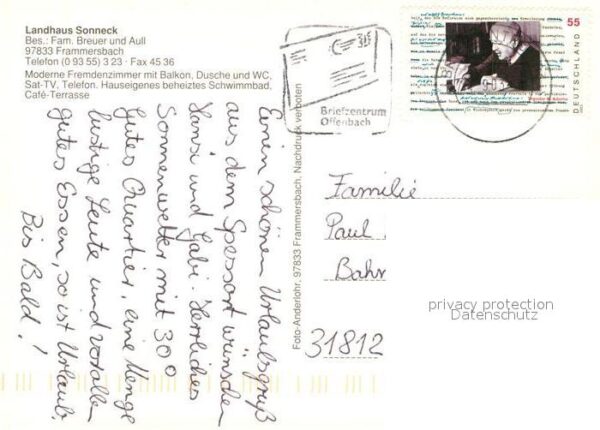 Landhaus Sonneck
Bes.: Fam. Breuer und Aull
97833 Frammersbach
Telefon (0 93 55) 3 23 · Fax 45 36
Moderne Fremdenzimmer mit Balkon, Dusche und WC,
Sat-TV, Telefon. Hauseigenes beheiztes Schwimmbad,
Café-Terrasse
Einen schönen Urlaubsgruß
aus dem Spessart wünschen
Hansi und Gabi. Herrliches
Sonnenwetter mit 30°
Gutes Quartier, eine Menge
lustige Leute und vorallem
gutes Essen, so ist Urlaub.
Bis Bald!
Foto-Anderlohr, 97833 Frammersbach, Nachdruck verboten
Briefzentrum
Offenbach
55
DEUTSCHLAND
Familie
Paul
Bahn
31812
privacy protection
Datenschutz